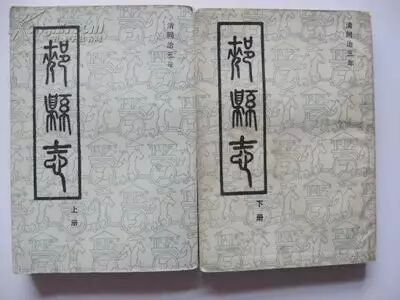 清同治三年
郟縣志
上册
清同治三年
郟縣志
下册